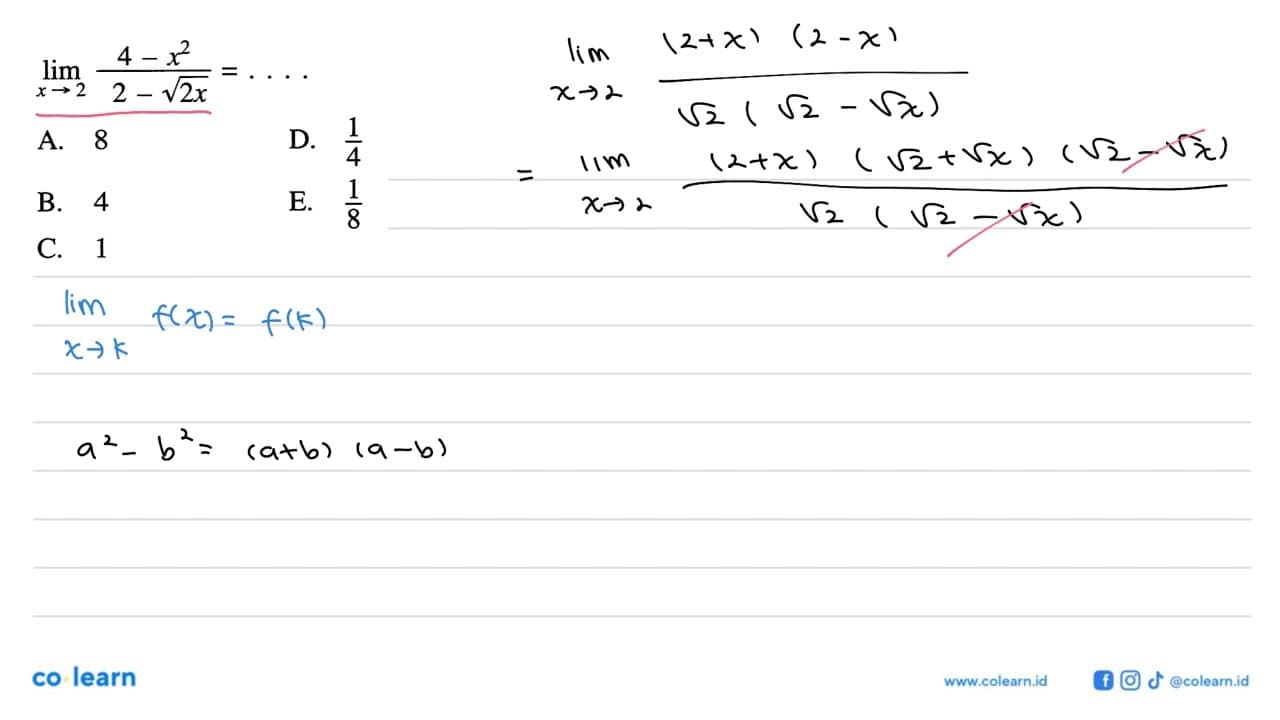 lim x→2 (4 − x²)/(2 − √2x) = . . . .
A. 8 D. 1/4
B. 4 E. 1/8
C. 1
lim x→2 (2+x) (2-x) / √2 (√2 - √x)
= lim x→2 (2+x) (√2+√x) (√2-√x) / √2 (√2 - √x)
lim x→k f(x) = f(k)
a² - b² = (a+b) (a-b)
co learn
www.colearn.id @colearn.id